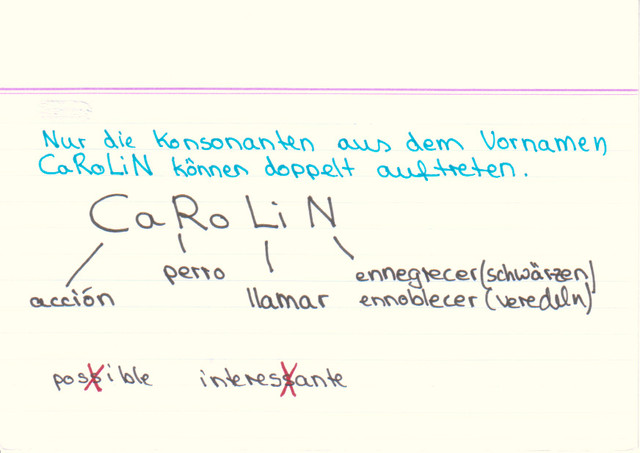 Nur die Konsonanten aus dem Vornamen
CaRoLiN können doppelt auftreten.
CaRoLiN
perro ennegrecer (schwärzen)
acción llamar ennoblecer (veredeln)
possible interessante